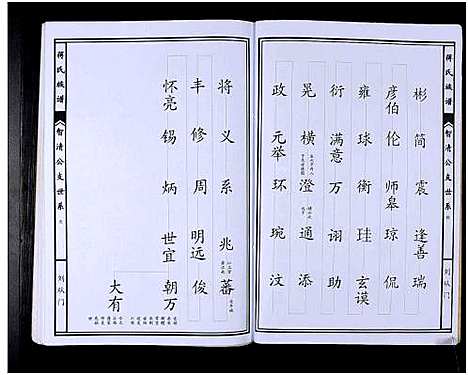 彬 简 震 逢善 瑞
彦伯 伦 师皋 琼 侃
雍 球 衡 珪 玄谟
衍 满意 万 诩 助
晃 横 澄 通 添
政 元举 环 琬 汶
蒋氏族谱
智清公支世系
将 义 系 兆 蕃
丰 修 周 明远 俊
怀亮 锡 炳 世宜 朝万
大有
蒋氏族谱
智清公支世系